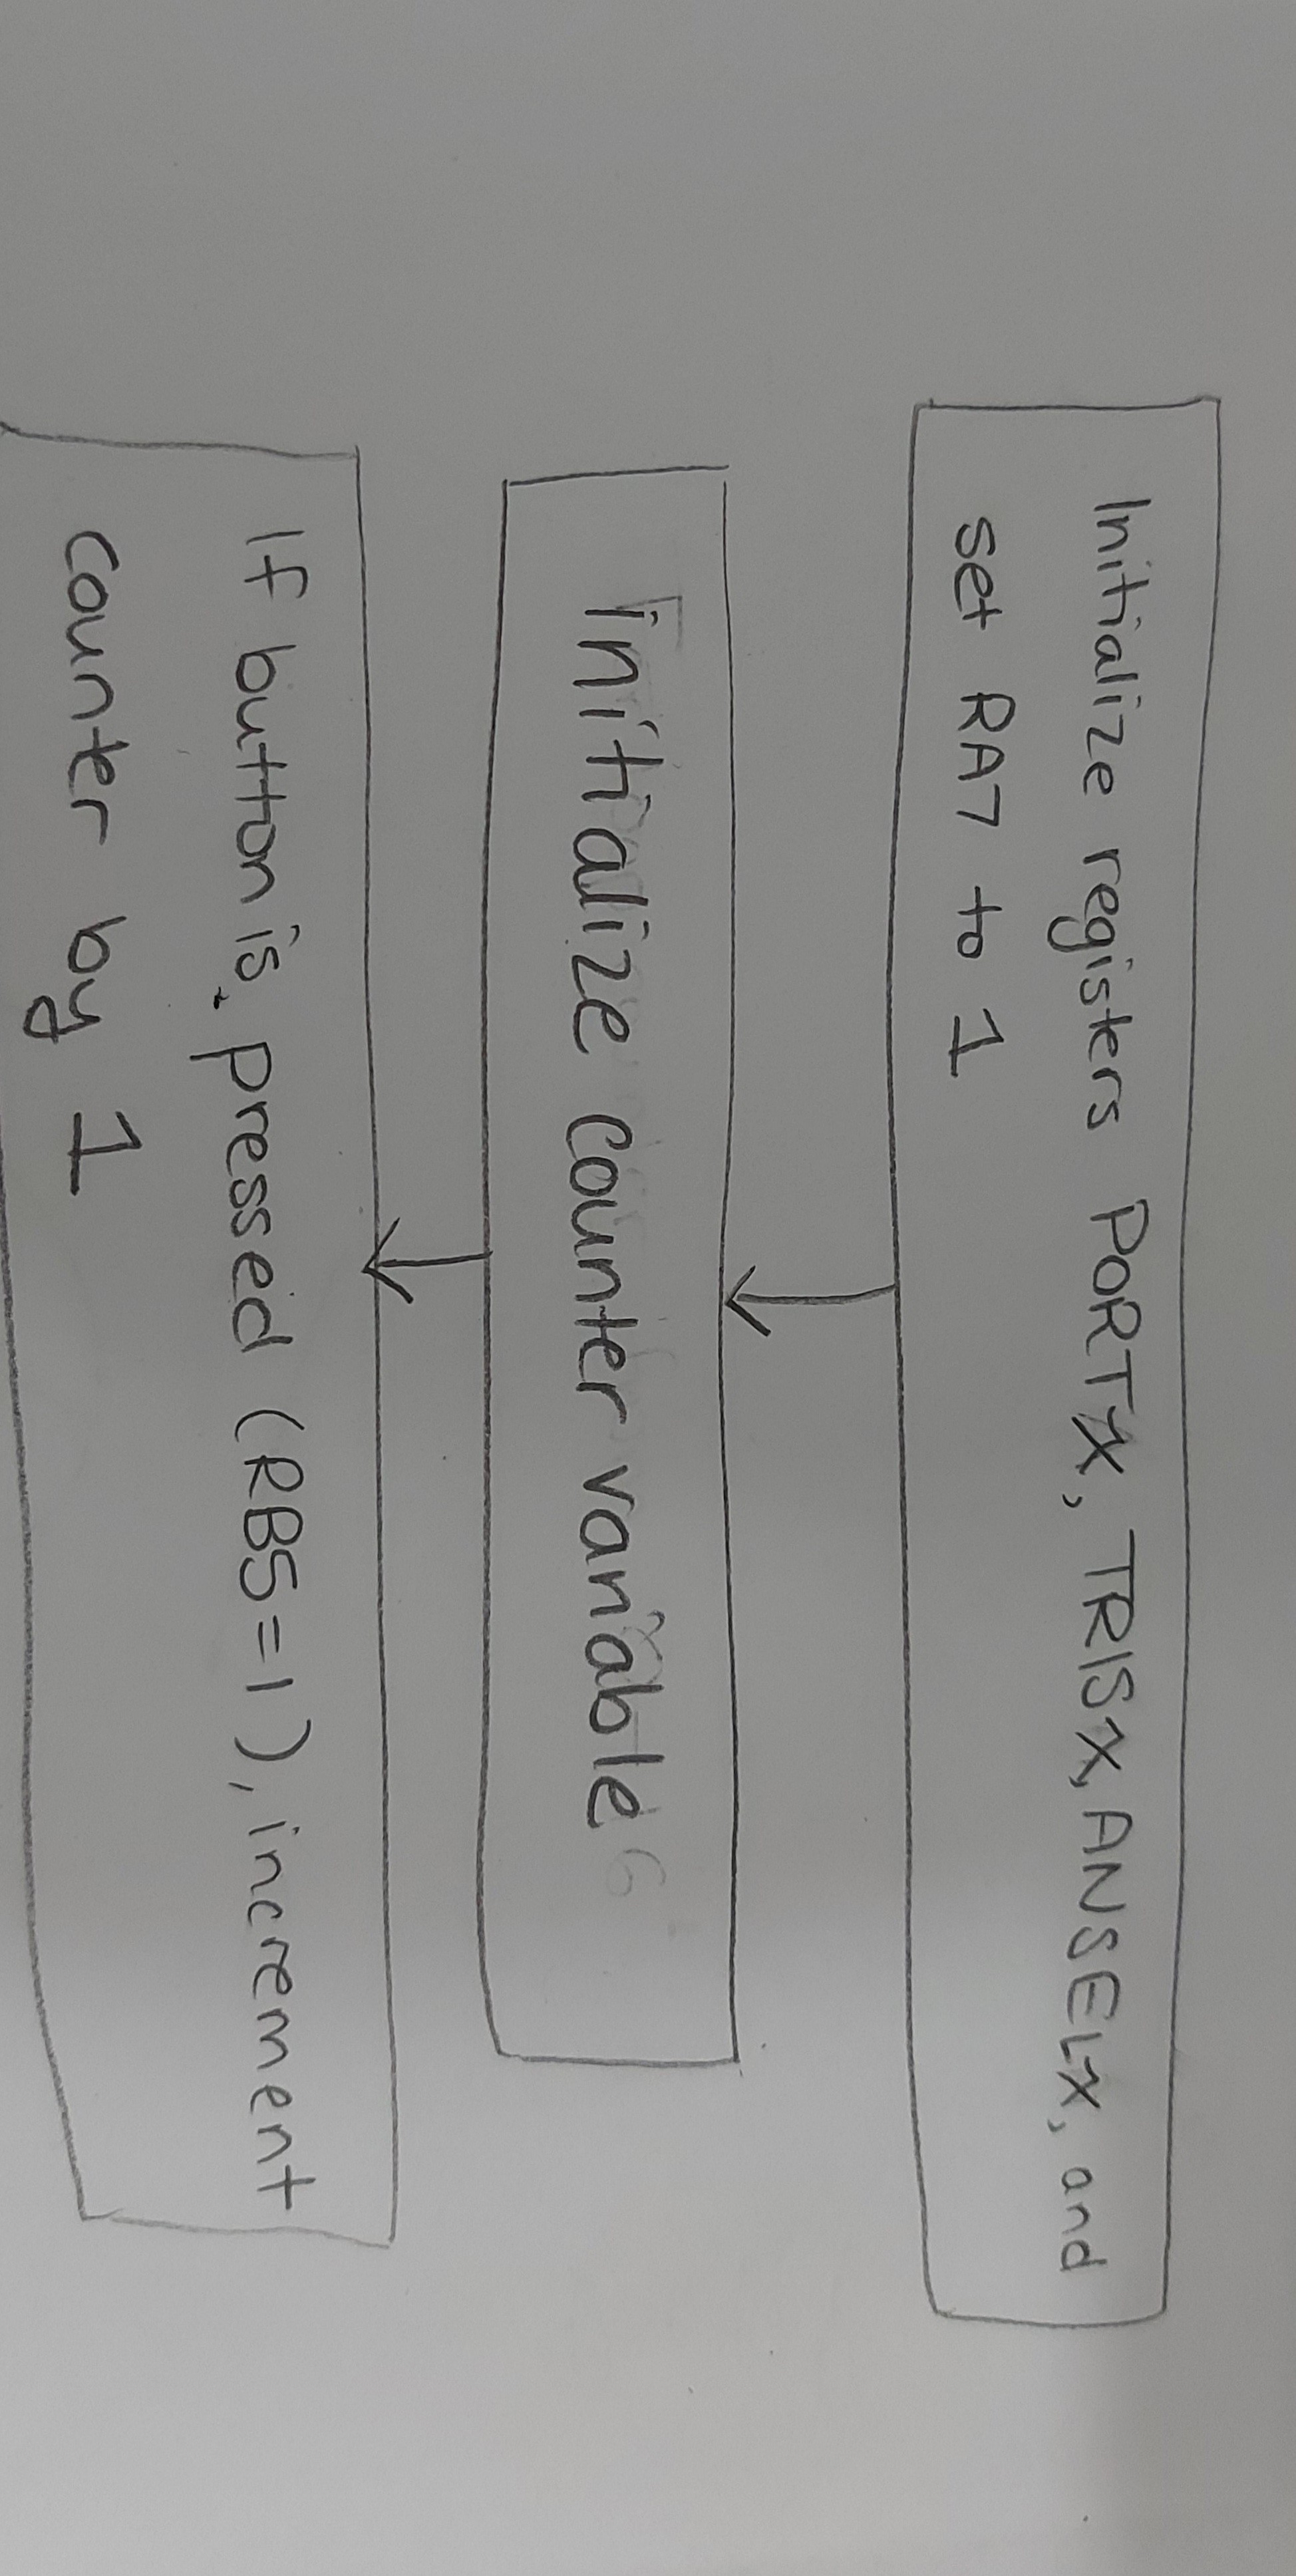 Initialize registers PORTX, TRISX, ANSELX, and
set RA7 to 1
Initialize counter variable
If button is pressed (RB5=1), increment
counter by 1